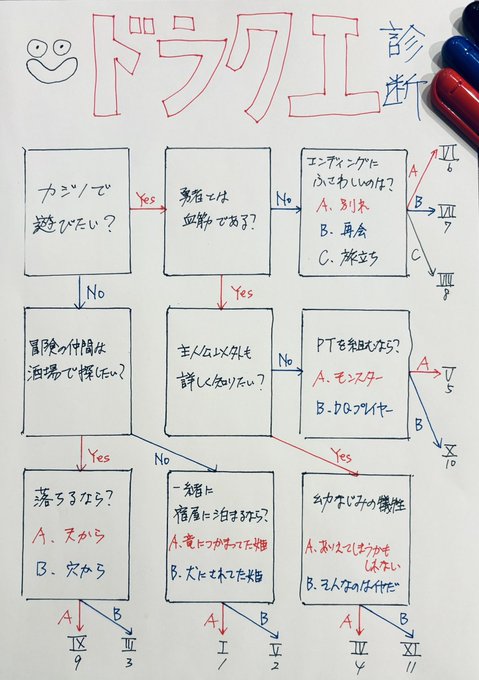 ドラクエ診断
カジノで
遊びたい?
Yes
No
勇者とは
血筋である?
No
Yes
エンディングに
ふさわしいのは?
A. 別れ
B. 再会
C. 旅立ち
A
VI
6
B
VII
7
C
VIII
8
冒険の仲間は
酒場で探したい?
Yes
No
主人公以外も
詳しく知りたい?
No
Yes
PTを組むなら?
A. モンスター
B. DQプレイヤー
A
V
5
B
X
10
落ちるなら?
A. 天から
B. 穴から
A
IX
9
B
III
3
一緒に
宿屋に泊まるなら?
A. 竜につかまってた姫
B. 犬にされてた姫
A
I
1
B
II
2
幼なじみの犠牲
A. ありえてしまうかも
しれない
B. そんなのはイヤだ
A
IV
4
B
XI
11